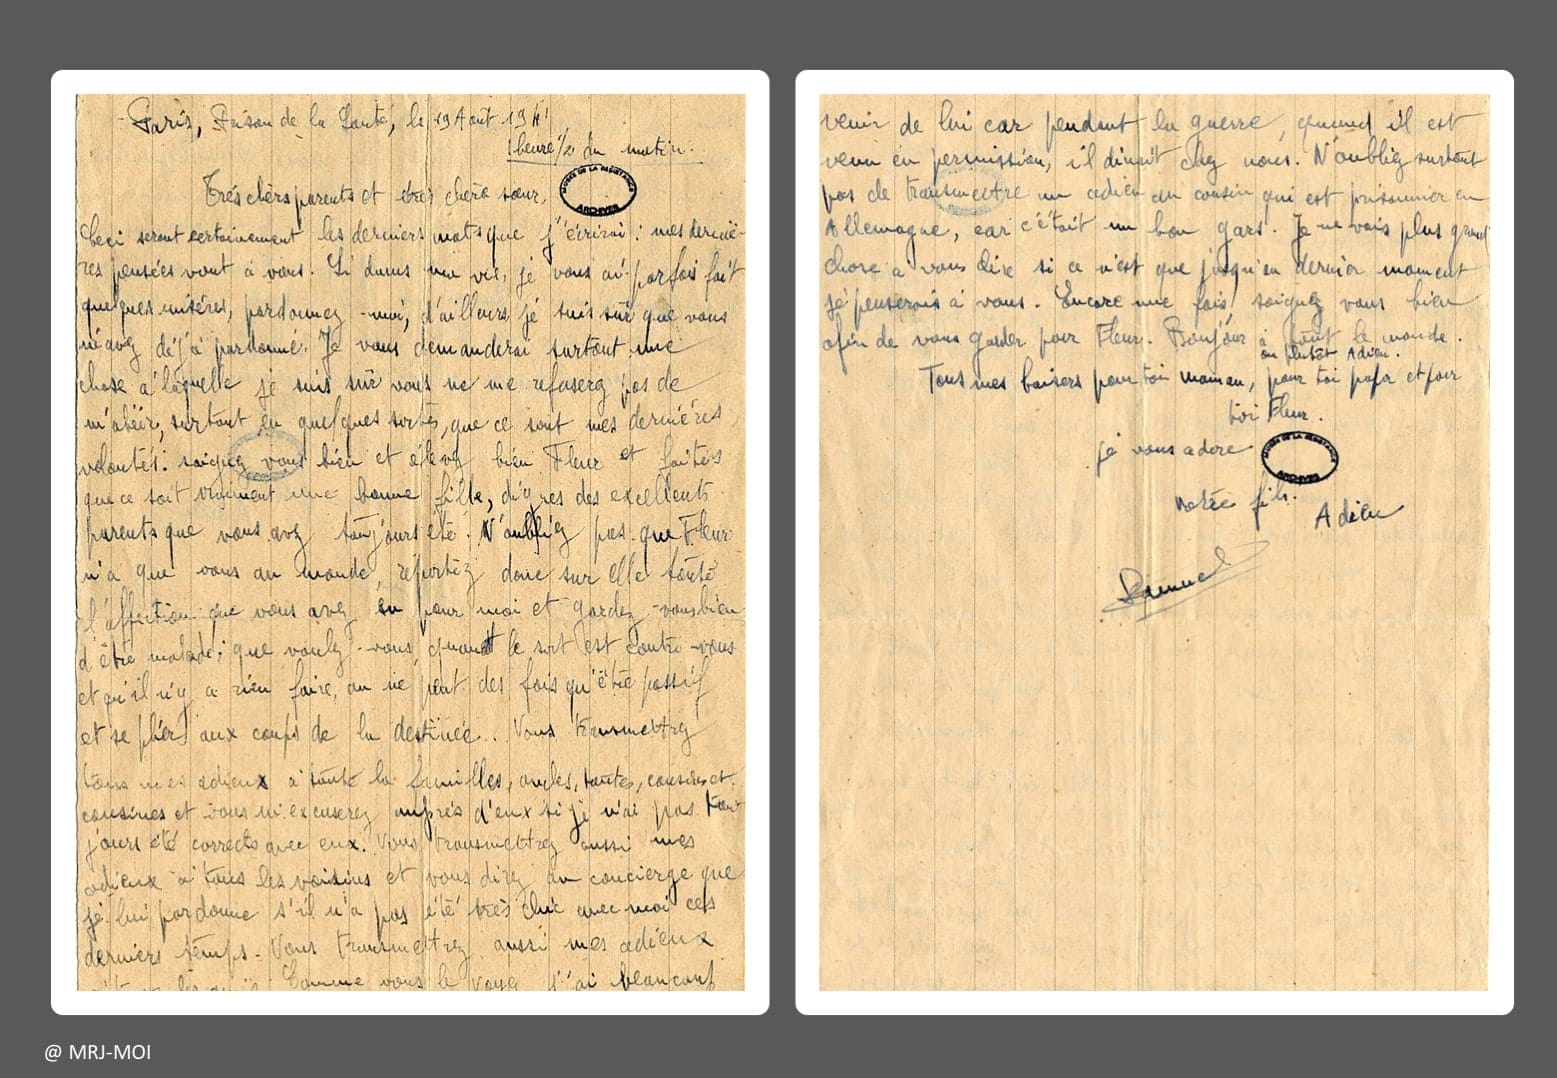 Paris, Prison de la Santé, le 19 Août 1941
1 heure 1/2 du matin.
Très chèrs parents et très chère sœur,
MUSÉE DE LA RÉSISTANCE
ARCHIVES
Ceci seront certainement les derniers mots que j'écrirai : mes derniè-
res pensées vont à vous. Si dans ma vie, je vous ai parfois fait
quelques misères, pardonnez-moi, d'ailleurs je suis sûr que vous
m'avez déjà pardonné. Je vous demanderai surtout une
chose à laquelle je suis sûr vous ne me refuserez pas de
m'obéir, surtout en quelques sortes, que ce sont mes dernières
volontés : soignez vous bien et élevez bien Fleur et faites
que ce soit vraiment une bonne fille, dignes des excellents
parents que vous avez toujours été. N'oubliez pas que Fleur
n'a que vous au monde, reportez donc sur elle toute
l'affection que vous avez eu pour moi et gardez-vous bien
d'être malade ; que voulez-vous, quand le sort est contre-vous
et qu'il n'y a rien faire, on ne peut des fois qu'être passif
et se plier aux coups de la destinée.. Vous transmettrez
tous mes adieux à toute la familles, oncles, tantes, cousins et
cousines et vous m'excuserez auprès d'eux si je n'ai pas tou-
jours été corrects avec eux. Vous transmettrez aussi mes
adieux à tous les voisins et vous direz au concierge que
je lui pardonne s'il n'a pas été très chic avec moi ces
derniers temps. Vous transmettrez aussi mes adieux
Comme vous le voyez j'ai beaucoup
venir de lui car pendant la guerre, quand il est
venu en permission, il dinait chez nous. N'oubliez surtout
pas de transmettre un adieu au cousin qui est prisonnier en
Allemagne, car c'était un bon gars. Je ne vois plus grand
chose à vous dire si ce n'est que jusqu'au dernier moment
je penserais à vous. Encore une fois, soignez vous bien
afin de vous garder pour Fleur. Bonjour à tout le monde.
ou plutôt Adieu.
Tous mes baisers pour toi maman, pour toi papa et pour
toi Fleur.
je vous adore
MUSÉE DE LA RÉSISTANCE
ARCHIVES
votre fils.
Adieu
Samuel
@ MRJ-MOI